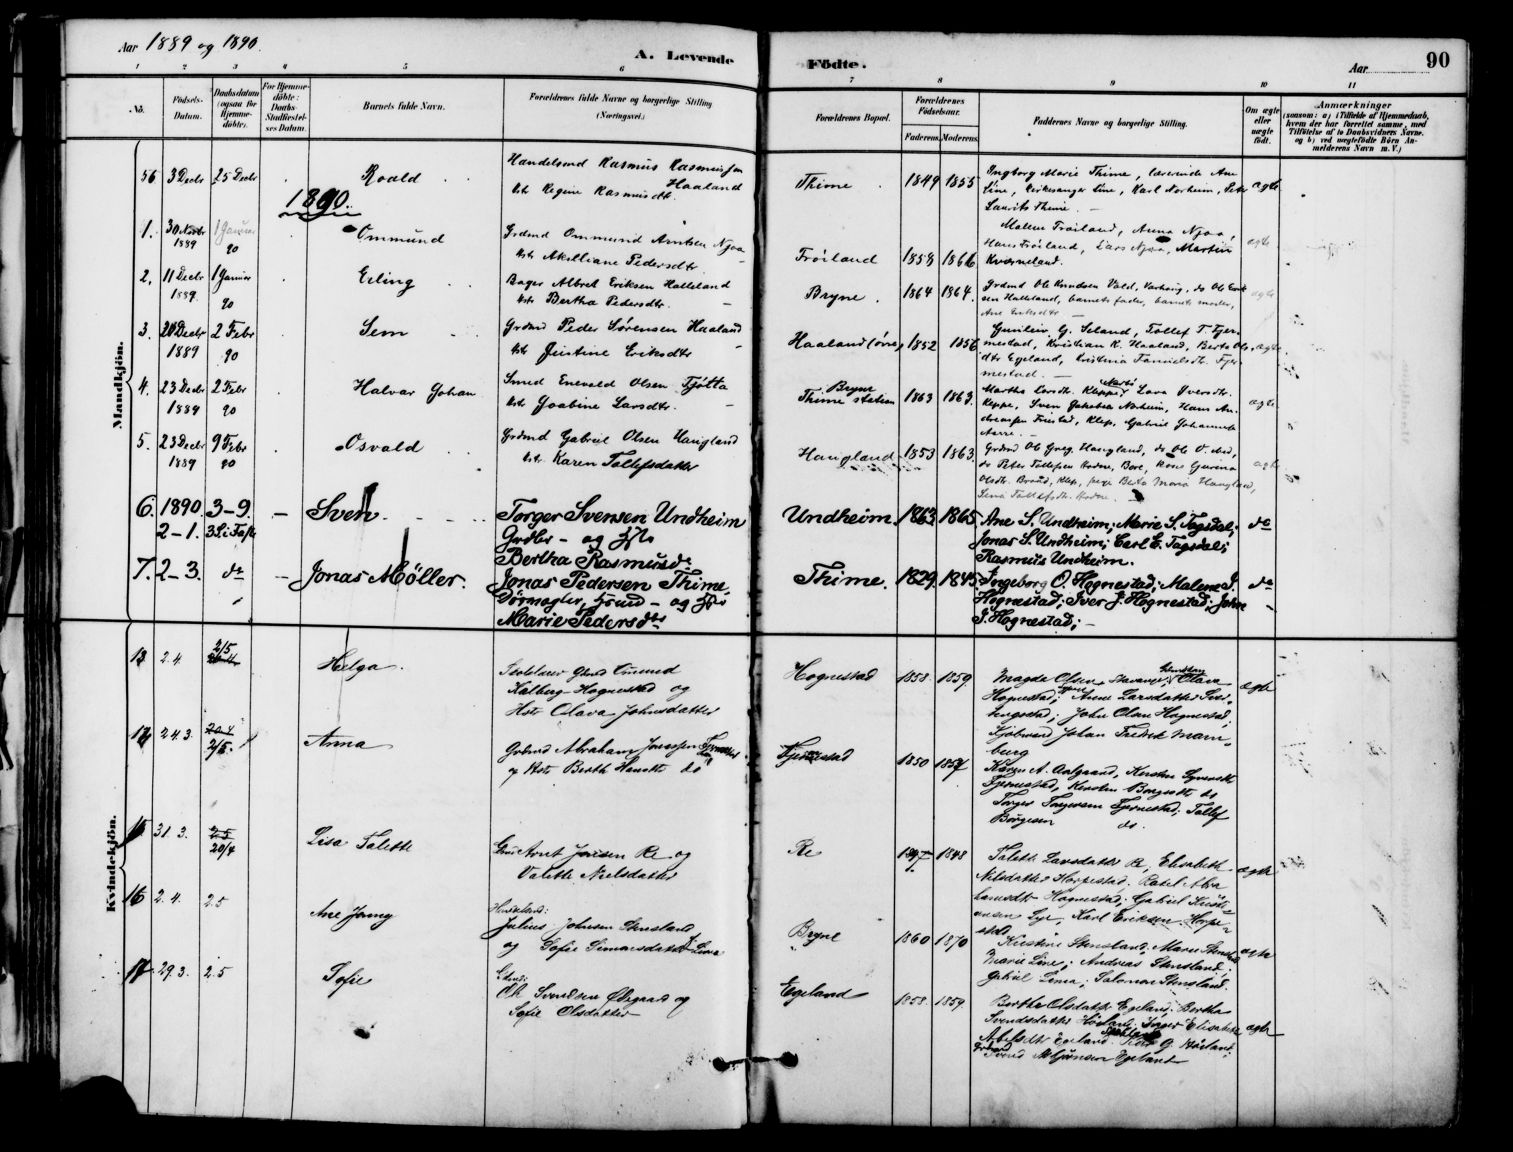 Aar 1889 og 1890.
A. Levende Födte.
Aar 90
1 2 3 4 5 6 7 8 9 10 11
No.
Födsels-Datum.
Daabsdatum (ogsaa for Hjemmedöbte).
For Hjemmedöbte: Daabs-Stadfæstelses Datum.
Barnets fulde Navn.
Forældrenes fulde Navne og borgerlige Stilling (Næringsvei.)
Forældrenes Bopæl.
Forældrenes Födselsaar.
Faderens. Moderens.
Faddernes Navne og borgerlige Stilling.
Om ægte eller uægte födt.
Anmærkninger
(saasom: a) i Tilfælde af Hjemmedaab, hvem der har forrettet samme, med Tilföielse af to Daabsvidners Navne. og b) ved uægtefödte Börn Anmelderens Navn m. V.)
Mandkjön.
56 3 Decbr 25 Decbr Roald
Handelsmd Rasmus Rasmussen Haaland
Hst. Regine Rasmusdtr.
Thime 1849 1855
Ingborg Marie Thime, lærerinde Ane
Line, Kirkesanger Line, Karl Norheim, Peter
Laurits Thime. —
ægte
1890.
1. 30 Novbr 1889 1 Januar 90 Ommund
Grdmd Ommund Arntsen Njaa
Hst. Akelliane Pedersdtr. —
Fröiland 1858 1866
Malene Fröiland, Anna Njaa,
Hans Fröiland, Lars Njaa, Martin
Kverneland.
ægte
2. 11 Decbr 1889. 1 Januar 90 Erling
Bager Albret Eriksen Halleland
Hst. Bertha Pedersdtr. —
Bryne. 1864 1864.
Grdmd Ole Knudsen Vold, Varhoug, do Ole Eriksen Halleland, barnets fader, barnets moder,
Ane Eriksdtr —
ægte
3. 20 Decbr 1889 2 Febr 90 Sem
Grdmd Peder Sörensen Haaland
Hst. Jeistine Eriksdtr —
Haaland (övre) 1852 1856
Gunleiv G. Seland, Tollef T. Fjermestad, Kristian K. Haaland, Berta Olsdtr Egeland, Kristina Danielsdtr. Fjermestad. —
ægte
4. 23 Decbr 1889 2 Febr 90 Halvar Johan
Smed Enevald Olsen Tjötta
Hst. Joabine Larsdtr. —
Bryne
Thime station 1863 1863.
Martha Larsdtr. Kleppe, Lava Iversdtr.
Kleppe, Sven Jakobsen Norheim, Hans Andreassen Friestad, Klep, Gabriel Johannes
Aarre —
ægte
5. 23 Decbr 1889 9 Febr 90 Osvald
Grdmd Gabriel Olsen Haugland
Hst. Karen Tollefsdatter
Haugland 1853 1863.
Grdmd Ole Greg. Haugland, do Ole O. ibid,
do Peter Tollefsen Bodne, Bore, kone Gurina
Olsdtr. Braud, Klep, pige Berta Maria Haugland,
Sina Tollefsdtr. Bodne. —
ægte
6. 1890. 2-1. 3-9. 3 S. i Faste — Sven.
Torger Svensen Undheim
Grdbr - og Hst
Bertha Rasmusdr
Undheim. 1863 1865
Ane S. Undheim; Marie S. Tagsdal;
Jonas S. Undheim; Carl E. Tagsdal;
Rasmus Undheim.
do
7. 2-3. do — Jonas Möller.
Jonas Pedersen Thime,
Hst
Marie Pedersdr
Thime. 1829 1845
Ingeborg O. Hognestad; Malene J.
Hognestad; Iver J. Hognestad; John
J. Hognestad; —
do
Kvindekjön.
13 2.4. 2/5 Helga.
Skolelærer Gbrd Omund
Kalberg Hognestad og
Hst Olava Johnsdatter
Hognestad 1858 1859
Magda Olsen Stavanger, Olava
Hognestad, Anne Larsdatter
John Olsen Hognestad,
Kjöbmand Johan Fredrik
ægte
14 24.3. 2/5. Anna
Grdmd Abraham Jonassen Fjermestad
og Hst Berth Hansdtr do
Fjermestad 1850 1857
Karen A. Aalgaard, Kersten
Fjermestad, Kersten Börgesdt do
Torger Torgersen Fjermestad, Tollef
Börgesen do.
15 31.3. 20/4 Lisa Talette
Gbrd Arnt Jonsen Re og
Valette Nielsdatter
Re 1847 1848
Talette Larsdatter Re, Elisabeth
Nilsdatter Horpestad, Rakel
Hognestad, Gabriel
Lye, Karl Eriksen Horpestad
ægte
16 2.4. 2.5 Ane Jenny
Handelsmd:
Julius Johnsen Stensland
og Sofie Simonsdatter Lima
Bryne 1860 1870
Kirstine Stensland, Marie Stensland
Marie Line, Andreas Stensland,
Gabriel Lima, Salomon Stensland.
ægte
17 29.3. 2.5 Sofie
Gbmd:
Ole Svendsen Ödegaard og
Sofie Olsdatter
Egeland 1858. 1859.
Berthe Olsdatter Egeland, Bertha
Svendsdatter Höiland, Inger Elisabeth
Egeland,
Grdmd Svend Egeland
ægte